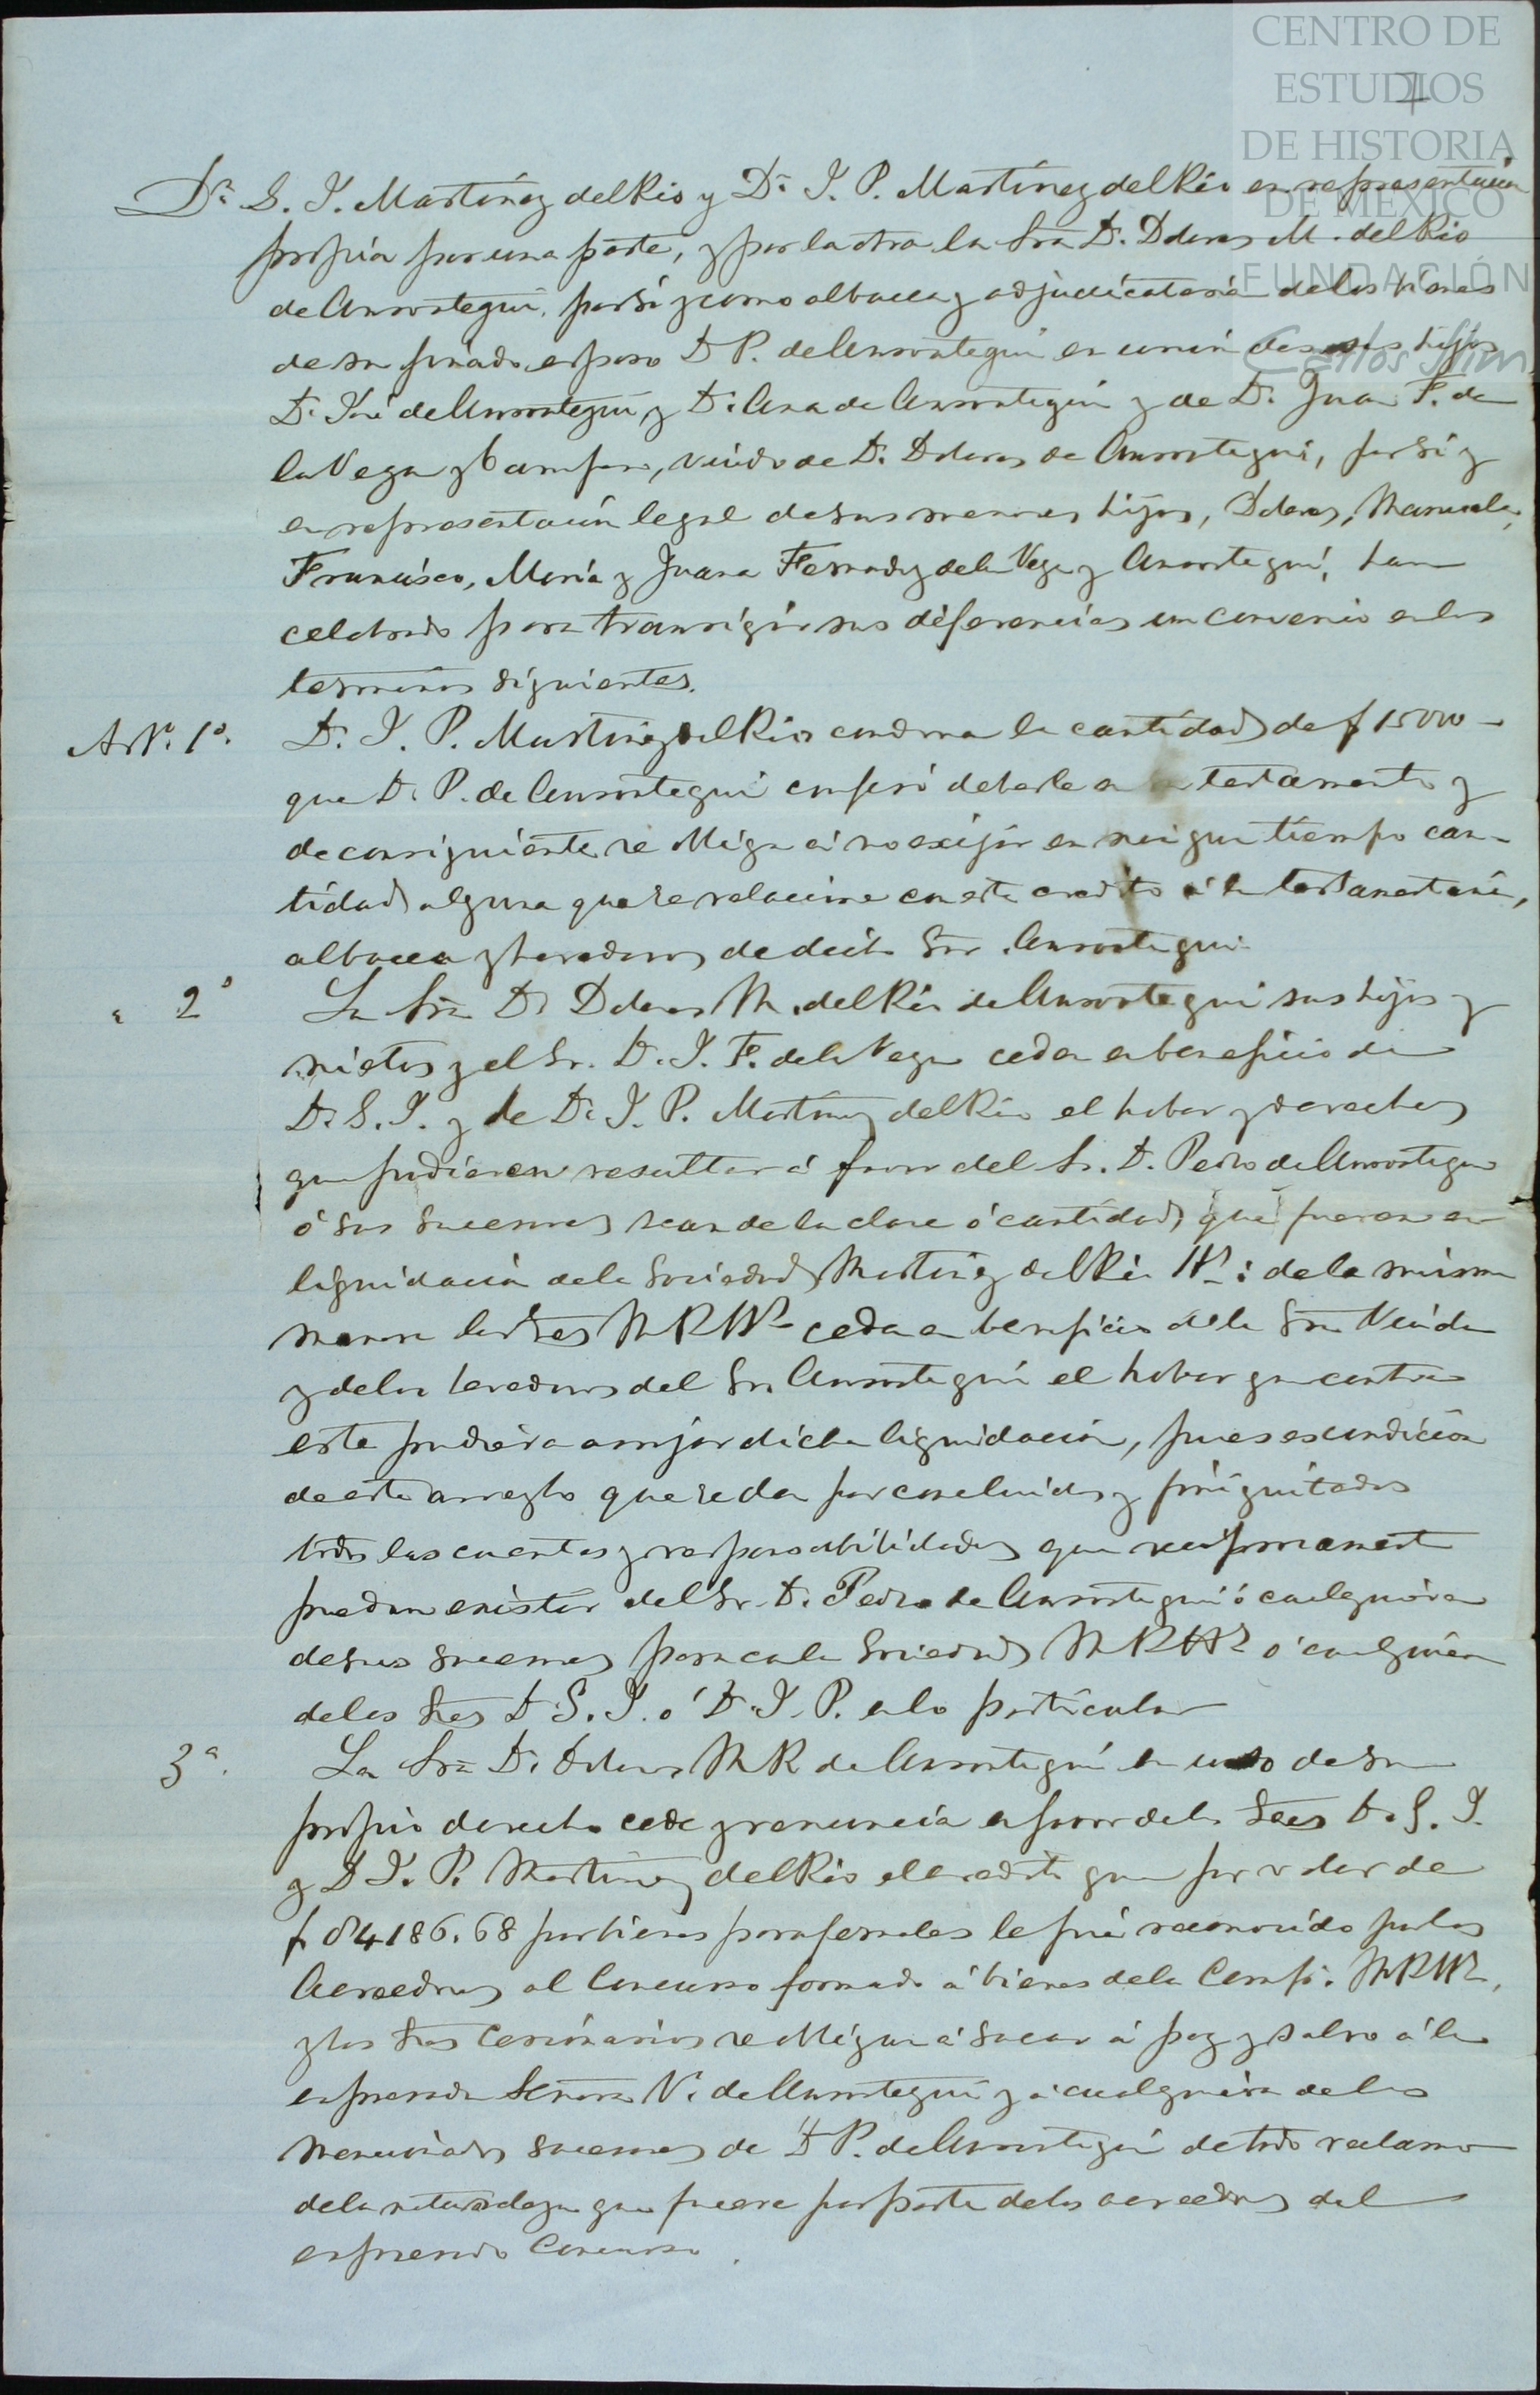 CENTRO DE
ESTUDIOS
DE HISTORIA
DE MÉXICO
FUNDACIÓN
Carlos Slim
7
Dn. S. J. Martínez del Rio y Dn. J. P. Martínez del Rio en representacion
propia por una parte, y por la otra la Sra Da. Dolores M. del Rio
de Ansoategui, por sí y como albacea y adjudicataria de los bienes
de su finado esposo D P. de Ansoategui en union de sus hijos
D. José de Ansoategui y Da. Ana de Ansoategui y de D. Juan F. de
la Vega y Campero, viudo de Da. Dolores de Ansoategui, por sí y
en representacion legal de sus menores hijos, Dolores, Manuela,
Francisco, María y Juana Fernandz de la Vega y Ansoategui, han
celebrado para transigir sus diferencias un convenio en los
terminos siguientes.
Art. 1o. D. J. P. Martinez del Rio condona la cantidad de $ 15000 –
que D. P. de Ansoategui confesó deberle en su testamento y
de consiguiente se obliga á no exijir en ningun tiempo can-
tidad alguna que se relacione con este credito á la testamentaria,
albacea y herederos de dicho Sor. Ansoategui
" 2o La Sra Da Dolores M. del Rio de Ansoategui sus hijos y
nietos y el Sr. D. J. F. de la Vega ceden en beneficio de
D. S. J. y de D. J. P. Martinez del Rio el haber y derechos
que pudieren resultar á favor del Sr. D. Pedro de Ansoategui
ó sus sucesores sean de la clase ó cantidad que fueren en
liquidacion de la Sociedad Martinez del Rio Hs: de la misma
manera los Sres M R Hs ceden en beneficio de la Sra Viuda
y de los herederos del Sr. Ansoategui el haber que contra
este pudiera arrojar dicha liquidacion, pues es condicion
de este arreglo que se dan por concluidas y finiquitadas
todas las cuentas y responsabilidades que reciprocamente
puedan existir del Sr. D. Pedro de Ansoategui ó cualquiera
de sus sucesores para con la Sociedad M R Hs ó cualquiera
de los Sres D S. J. ó D. J. P. en lo particular
3a. La Sra Da. Dolores M R de Ansoategui en uso de su
propio derecho cede y renuncia en favor de los Sres D. S. J.
y D J. P. Martinez del Rio el credito que por valor de
$ 84186.68 por bienes parafernales le fué reconocido por los
Acreedores al Concurso formado á bienes de la Compa. M R Hs,
y los Sres Cesionarios se obligan á sacar á paz y salvo á la
espresada Señora V. de Ansoategui y á cualquiera de los
mencionados sucesores de D P. de Ansoategui de todo reclamo
de la naturaleza que fuere por parte de los acreedores del
espresado Concurso.